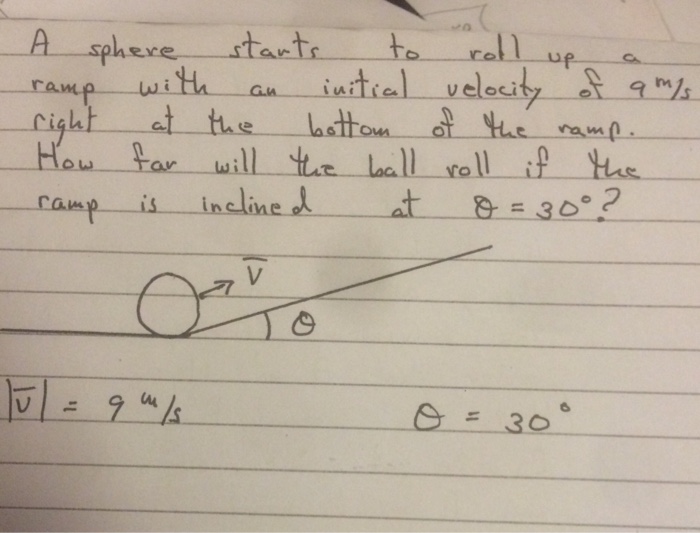 A sphere starts to roll up a
ramp with an initial velocity of 9 m/s
right at the bottom of the ramp.
How far will the ball roll if the
ramp is inclined at θ = 30°?
v̅
θ
|v̅| = 9 m/s θ = 30°